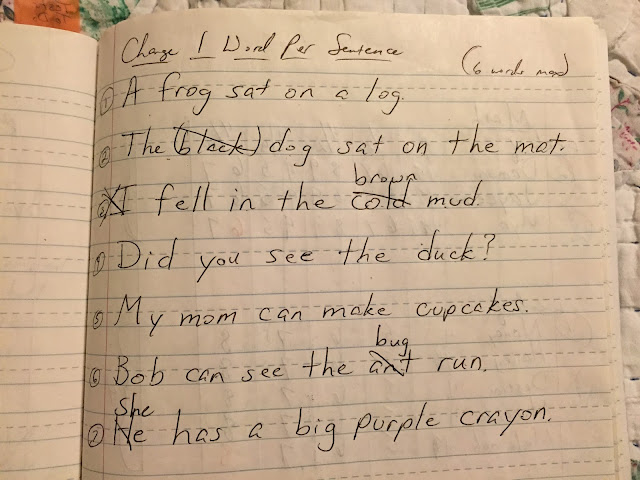 Change 1 Word Per Sentence
(6 words max)
① A frog sat on a log.
② The (black) dog sat on the mat.
brown
③ I fell in the cold mud.
④ Did you see the duck?
⑤ My mom can make cupcakes.
bug
⑥ Bob can see the ant run.
She
⑦ He has a big purple crayon.